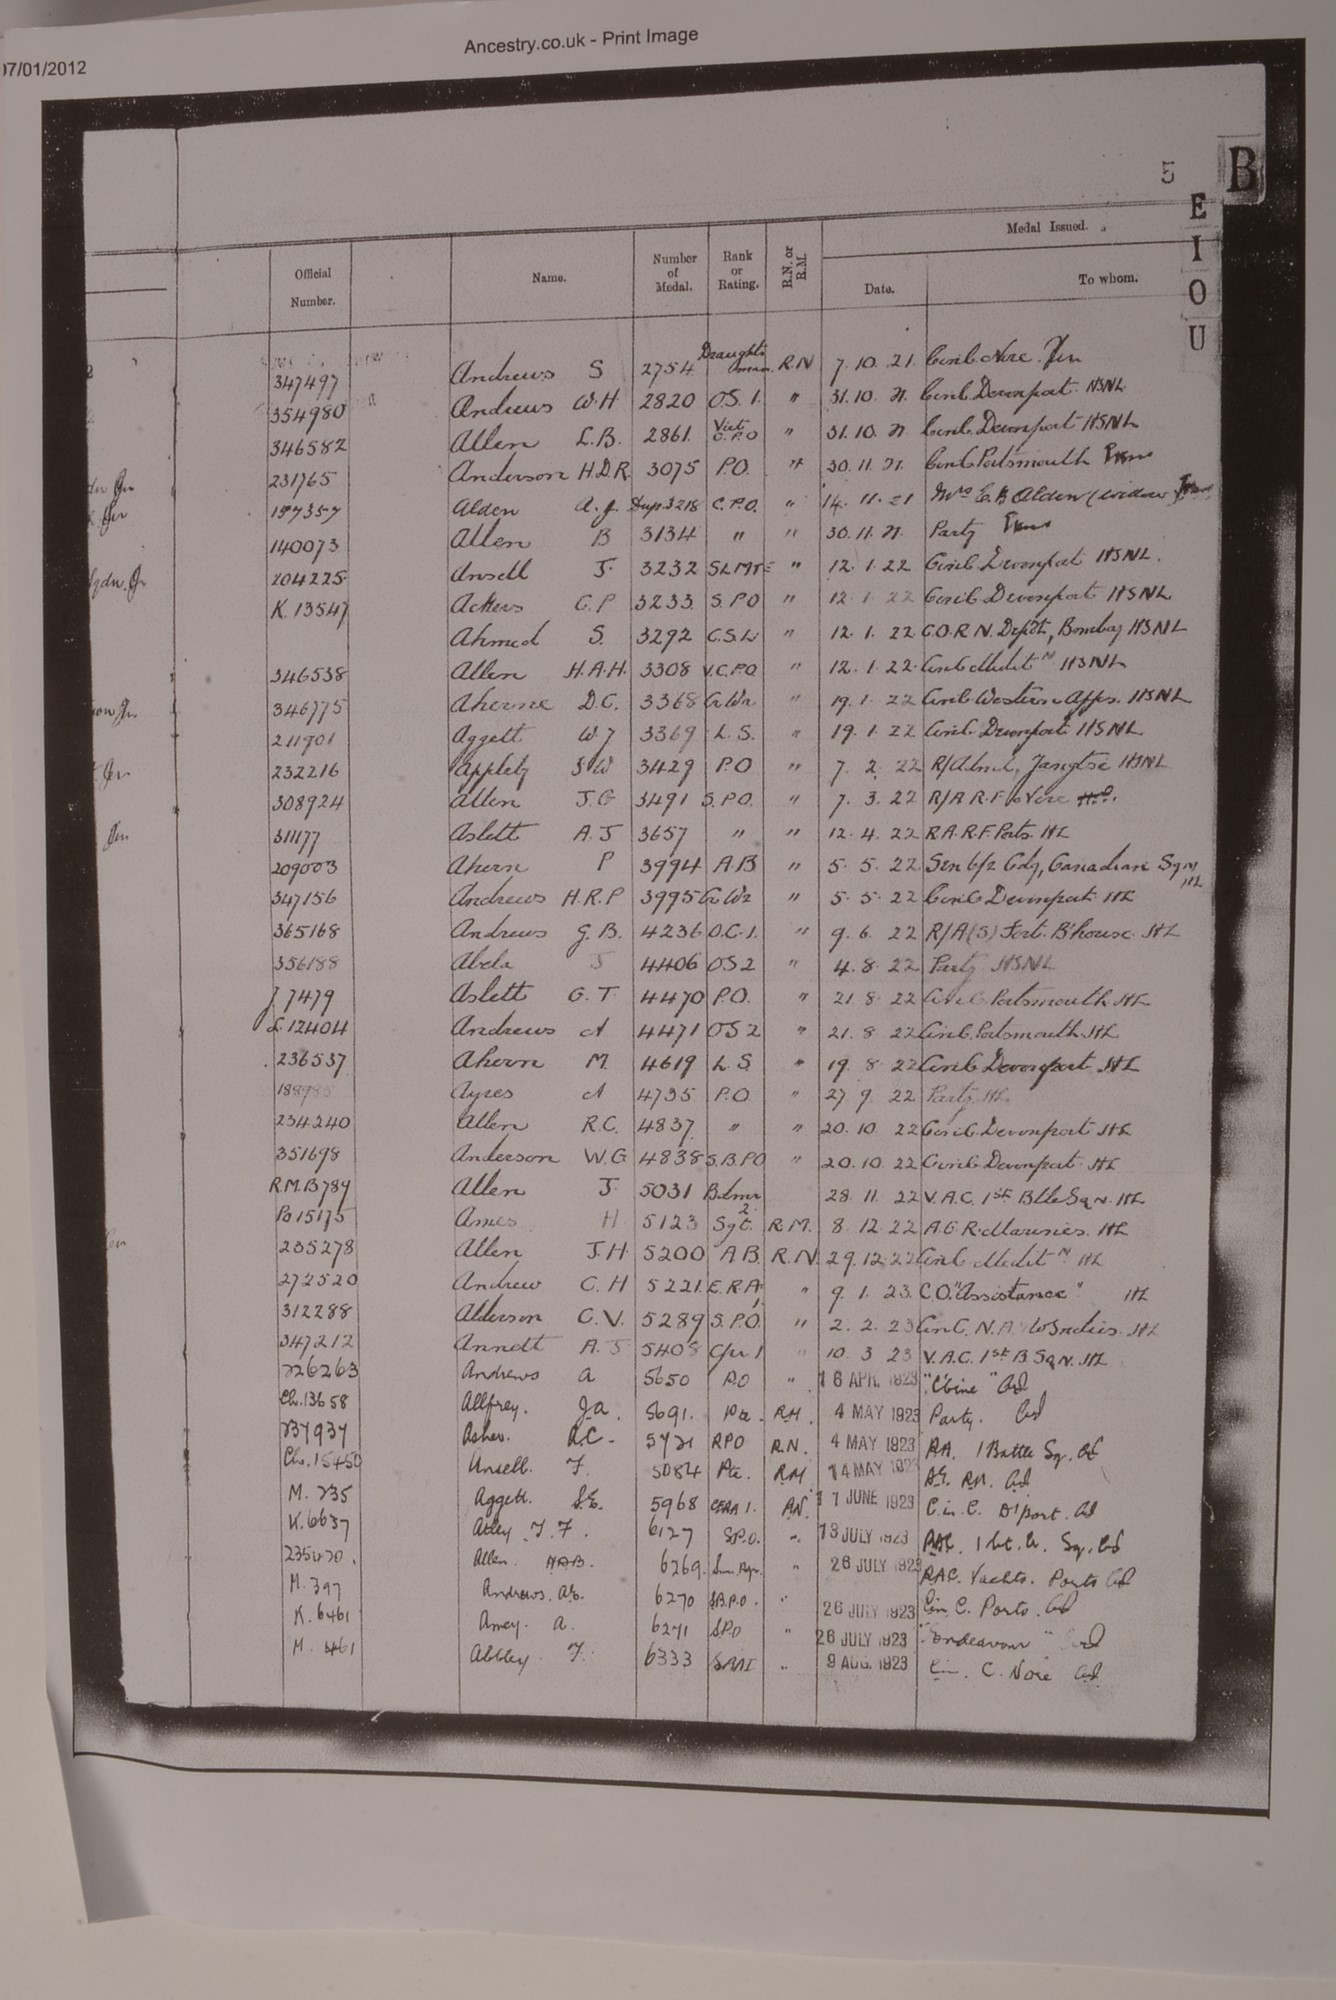 Ancestry.co.uk - Print Image
07/01/2012
5 B
E
I
O
U
Medal Issued.
Official Number. Name. Number of Medal. Rank or Rating. R.N. or R.M. Date. To whom.
347497 Andrews S 2754 Draughtsman R.N 7.10.21. CinC Nore
354980 Andrews W.H 2820 O.S.1. " 31.10.21. CinC Devonport HSNL
346582 Allen L.B. 2861 Vict C.P.O " 31.10.21 CinC Devonport HSNL
231765 Anderson H.D.R. 3075 P.O. " 30.11.21. CinC Portsmouth
157357 Alden A.J. Dup. 3218 C.P.O. " 14.11.21 Mrs E.B Alden (widow)
140073 Allen B 3134 " " 30.11.21. Party
204225 Ansell J. 3232 SLMTE " 12.1.22 CinC Devonport HSNL.
K.13547 Ackers C.P 3233 S.P.O " 12.1.22 CinC Devonport HSNL
Ahmed S. 3292 C.S.W " 12.1.22 C.O.R.N. Depôt, Bombay HSNL
346538 Allen H.A.H. 3308 V.C.P.O " 12.1.22 CinC Meditn HSNL
346775 Aherne D.C. 3368 " 19.1.22 CinC Western Apps. HSNL
211901 Aggett W J 3369 L.S. " 19.1.22 CinC Devonport HSNL
232216 Appleby S W 3429 P.O " 7.2.22 R/Adml, Yangtse HSNL
308924 Allen J.G 3491 S.P.O. " 7.3.22 R/A R.F.
311177 Aslett A.J 3657 " " 12.4.22 R.A.R.F. Ports. HL
209003 Ahern P 3994 A.B " 5.5.22 Sen Cdg, Canadian Sqn HL
347156 Andrews H.R.P 3995 " 5.5.22 CinC Devonport HL
365168 Andrews G.B. 4236 O.C.1. " 9.6.22 R/A(S) Fort B'house HL
356188 Abela J 4406 OS2 " 4.8.22 Party HSNL
J 7479 Aslett G.T 4470 P.O. " 21.8.22 CinC Portsmouth HL
L.12404 Andrews A 4471 OS2 " 21.8.22 CinC Portsmouth HL
236537 Ahern M. 4619 L.S. " 19.8.22 CinC Devonport HL
Ayres A 4735 P.O. " 27.9.22 Party HL
234240 Allen R.C. 4837 " " 20.10.22 CinC Devonport HL
351698 Anderson W.G 4838 S.B.P.O " 20.10.22 CinC Devonport HL
R.M.B789 Allen J. 5031 Bdmr 28.11.22 V.A.C. 1st Btle Sqn. HL
Po 15175 Ames H 5123 Sgt. 2 R.M. 8.12.22 A.G.R. Marines. HL
235278 Allen J.H. 5200 A.B. R.N. 29.12.22 CinC Meditn HL
272520 Andrew C.H 5221. E.R.A. 1 " 9.1.23. C.O. "Assistance" HL
312288 Alderson C.V. 5289 S.P.O. " 2.2.23 CinC. N.A. W Indies. HL
347212 Annett A.J 5408 " 10.3.23 V.A.C. 1st B Sqn. HL
226263 Andrews A 5650 P.O " 16 APR. 1923
Ch.13658 Allfrey. J.A. 5691. Pte. R.M. 4 MAY 1923 Party.
237937 Asher. A.C. 5721 RPO R.N. 4 MAY 1923 R.A. 1 Battle Sq.
Ch.15450 Ansell. F. 5084 Pte. R.M 14 MAY 1923 A.G. R.M.
M. 235 Aggett. S.E. 5968 CERA 1. R.N. JUNE 1923 C. in. C. D'port.
K.6637 Atley F.F. 6127 S.P.O. " 13 JULY 1923 1 Lt. Cr. Sq.
235420. Allen. 6269. " 26 JULY 1923 RAC. Yachts. Ports
M. 397 Andrews. A.G. 6270 S.B.P.O. " 26 JULY 1923 Cin. C. Ports.
K. 6461 Amey. A. 6271 S.P.O " 26 JULY 1923 "Endeavour"
M. 461 Abbley F. 6333 " 9 AUG. 1923 Cin. C. Nore